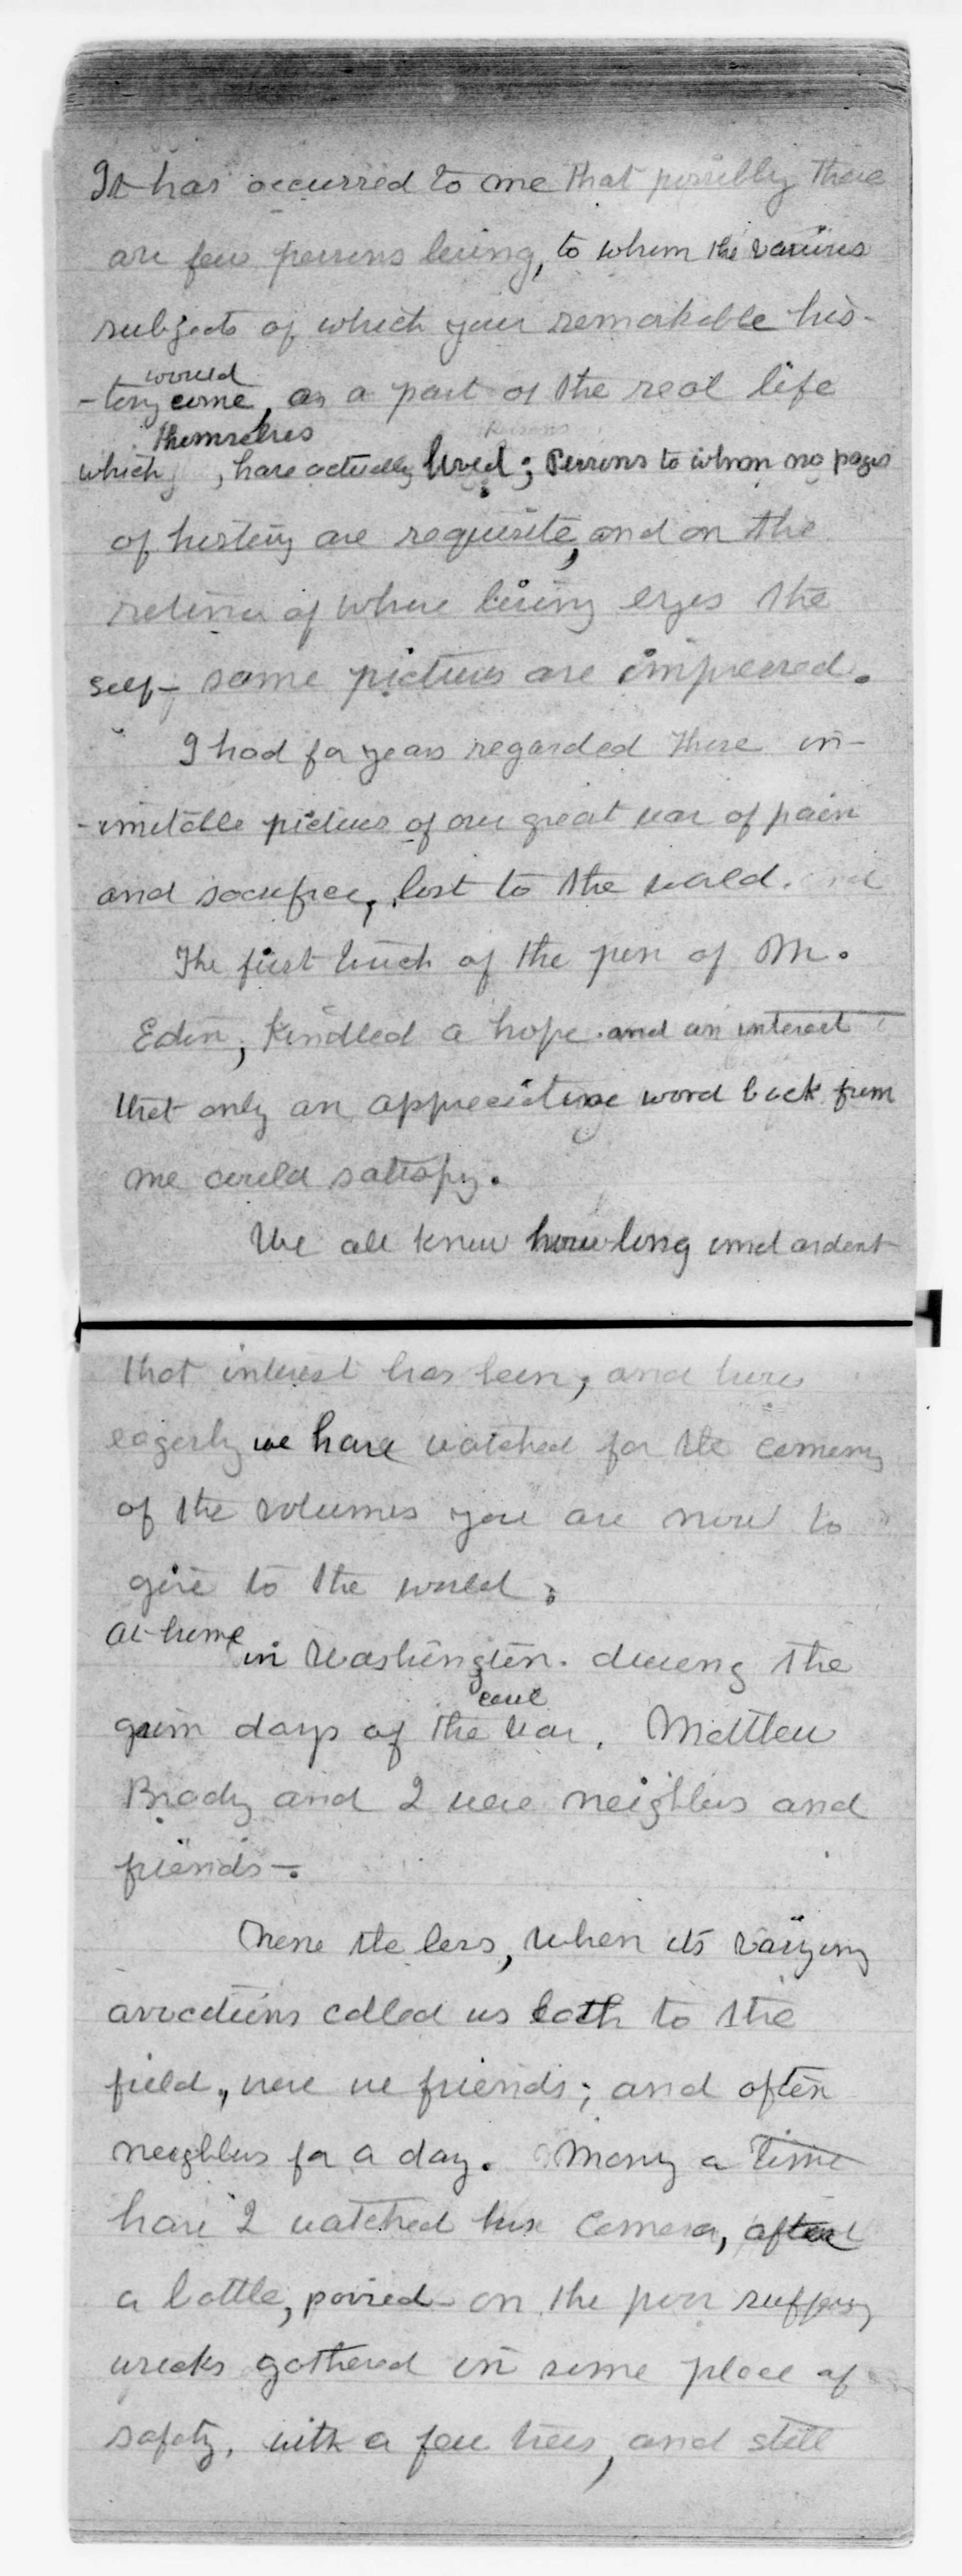 It has occurred to me that possibly there
are few persons living, to whom the various
subjects of which your remarkable his-
would
-tory come, as a part of the real life
themselves Persons
which, have actually lived; Persons to whom no pages
of history are requisite, and on the
retina of whose living eyes the
self- same pictures are impressed.
I had for years regarded these in-
-imitable pictures of our great war of pain
and sacrifice, lost to the world. and
The first touch of the pen of M.
Eden, kindled a hope and an interest
that only an appreciative word back from
me could satisfy.
We all know how long and ardent
that interest has been, and how
eagerly we have watched for the coming
of the volumes you are now to
give to the world;
At home in Washington during the
civil
grim days of the war, Matthew
Brady and I were neighbors and
friends-.
None the less, when its varying
avocations called us both to the
field, were we friends; and often
neighbors for a day. Many a time
have I watched his camera, after
a battle, poised on the poor suffering
wrecks gathered in some place of
safety, with a few trees, and still